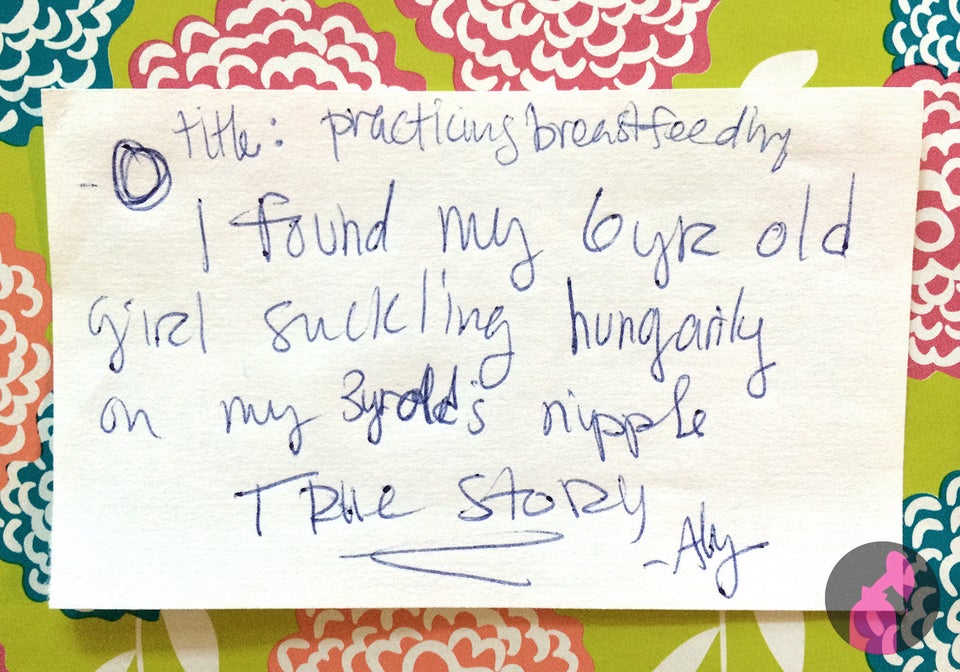 title: practicing breastfeeding
I found my 6yr old
girl suckling hungarily
on my 3yrold's nipple
TRUE STORY
-Aby